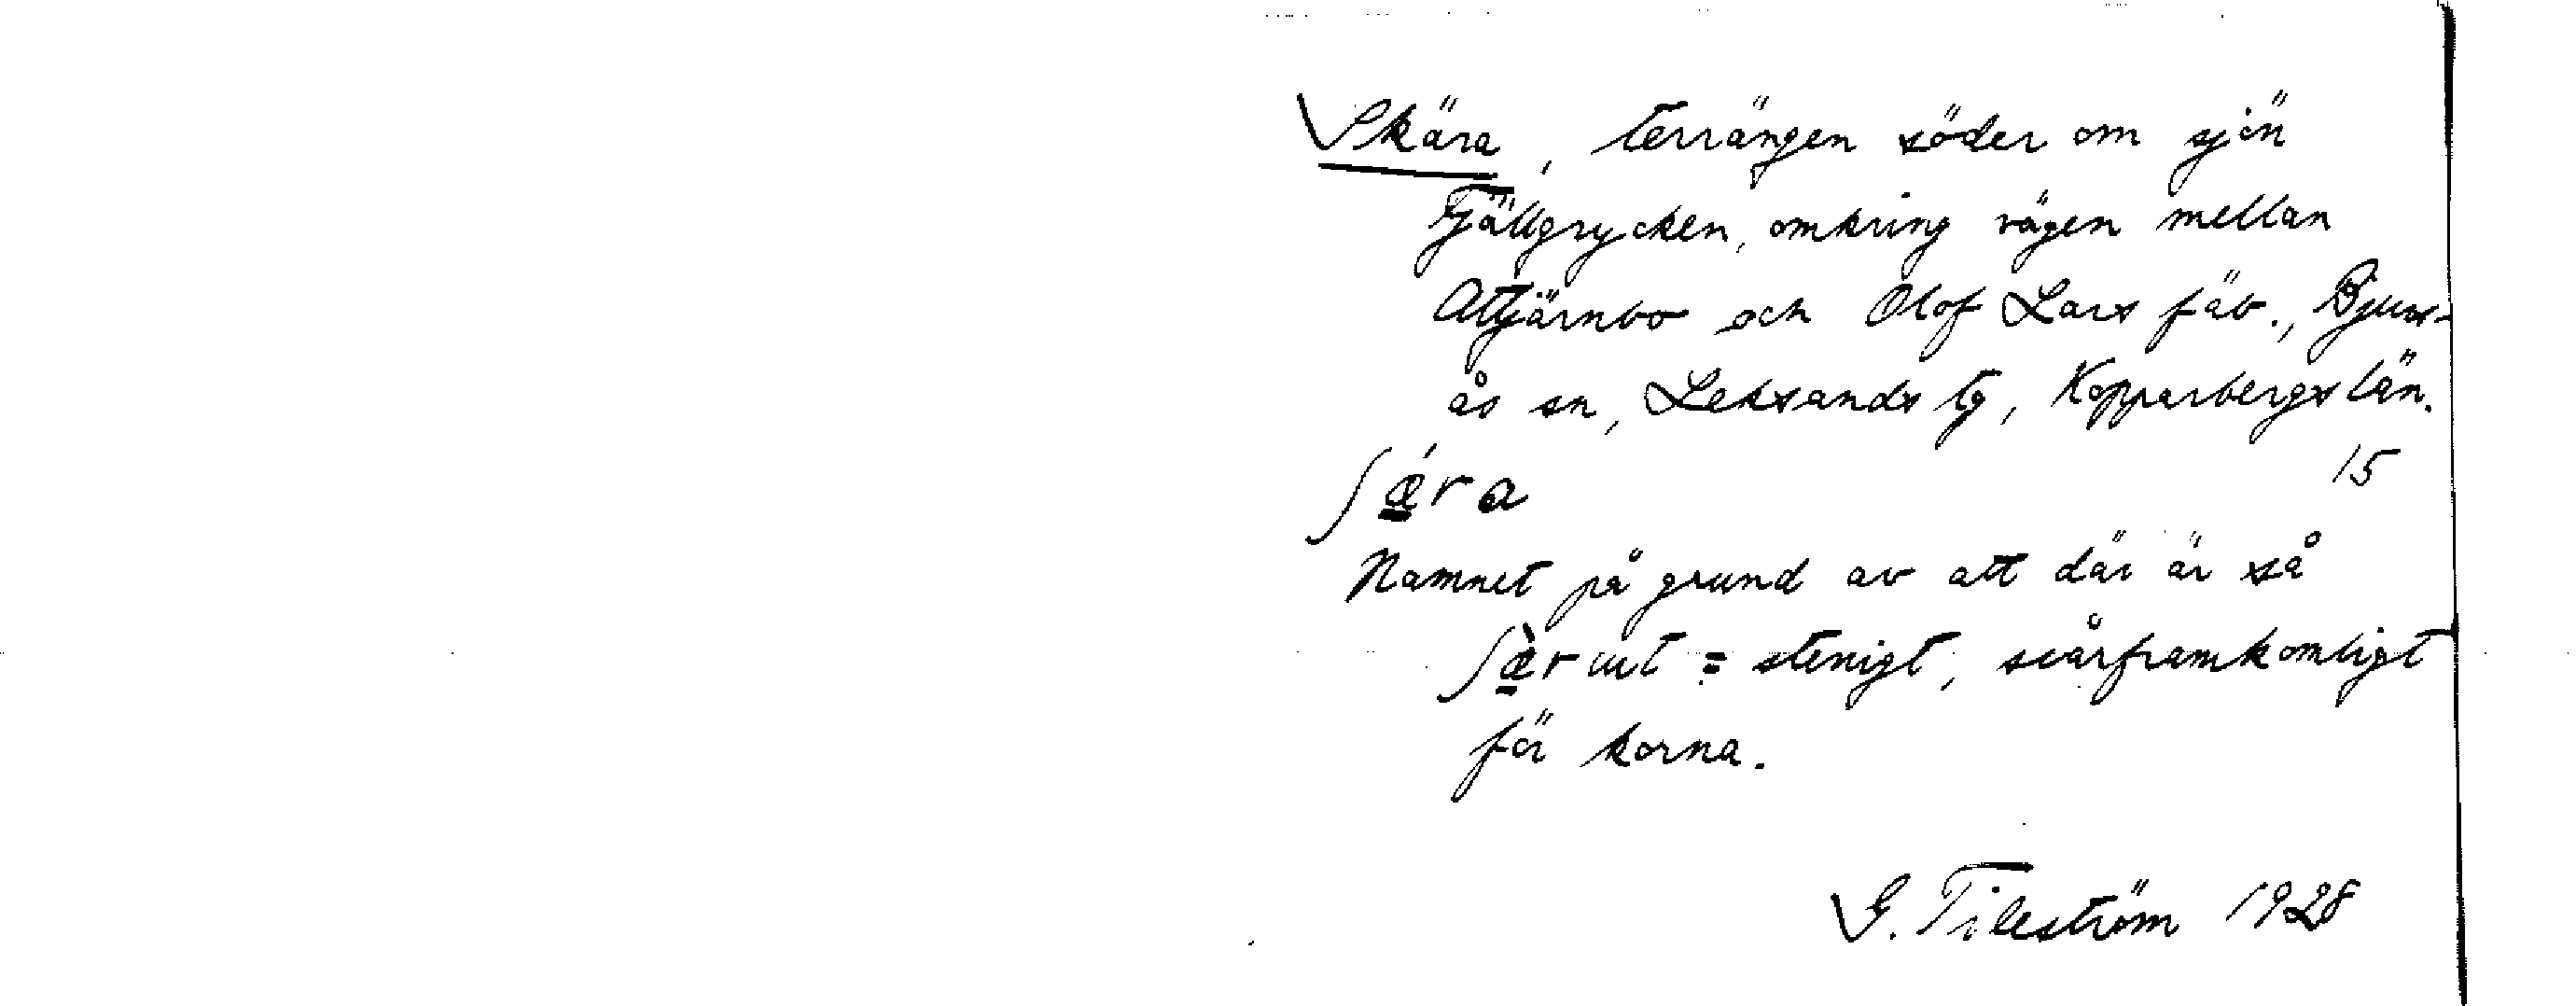 Skära, terrängen söder om sjön
Fjällgrycken, omkring vägen mellan
Attjärnbo och Olof Lars fäb., Bjurs-
ås sn, Leksands tg, Kopparbergs län.
ʃǽ̱ra 15
Namnet på grund av att där är så
ʃæ̱̀rɯt = stenigt, svårframkomligt
för korna.
G. Tileström 1928